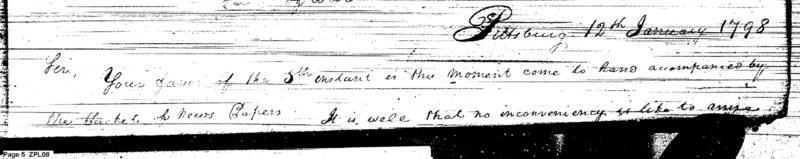 Pittsburg 12th January 1798
Sir, Your favor of the 5th instant is this moment come to hand accompanied by
the Packets & News Papers It is well that no inconveniency is like to arise
Page 5 ZPL08